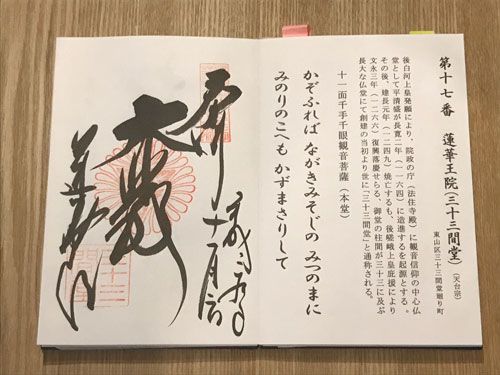 第十七番 蓮華王院(三十三間堂)(天台宗)
東山区三十三間堂廻り町
後白河上皇発願により、院政の庁(法住寺殿)に観音信仰の中心仏
堂として平清盛が長寛二年(一一六四)に造進するを起源とする。
その後、建長元年(一二四九)焼亡するも、後嵯峨上皇庇援により
文永三年(一二六六)復興落慶せらる、御堂の柱間が三十三に及ぶ
長大な仏堂にて創建の当初より世に「三十三間堂」と通称される。
十一面千手千眼観音菩薩(本堂)
かぞふれば ながきみそじの みつのまに
みのりのこへも かずまさりして
奉拝
大悲殿